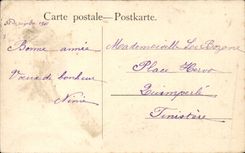 Carte postale—Postkarte.
Bonne année
Vœux de bonheur
Ninie
Mademoiselle
Place
Quimperlé
Finistère